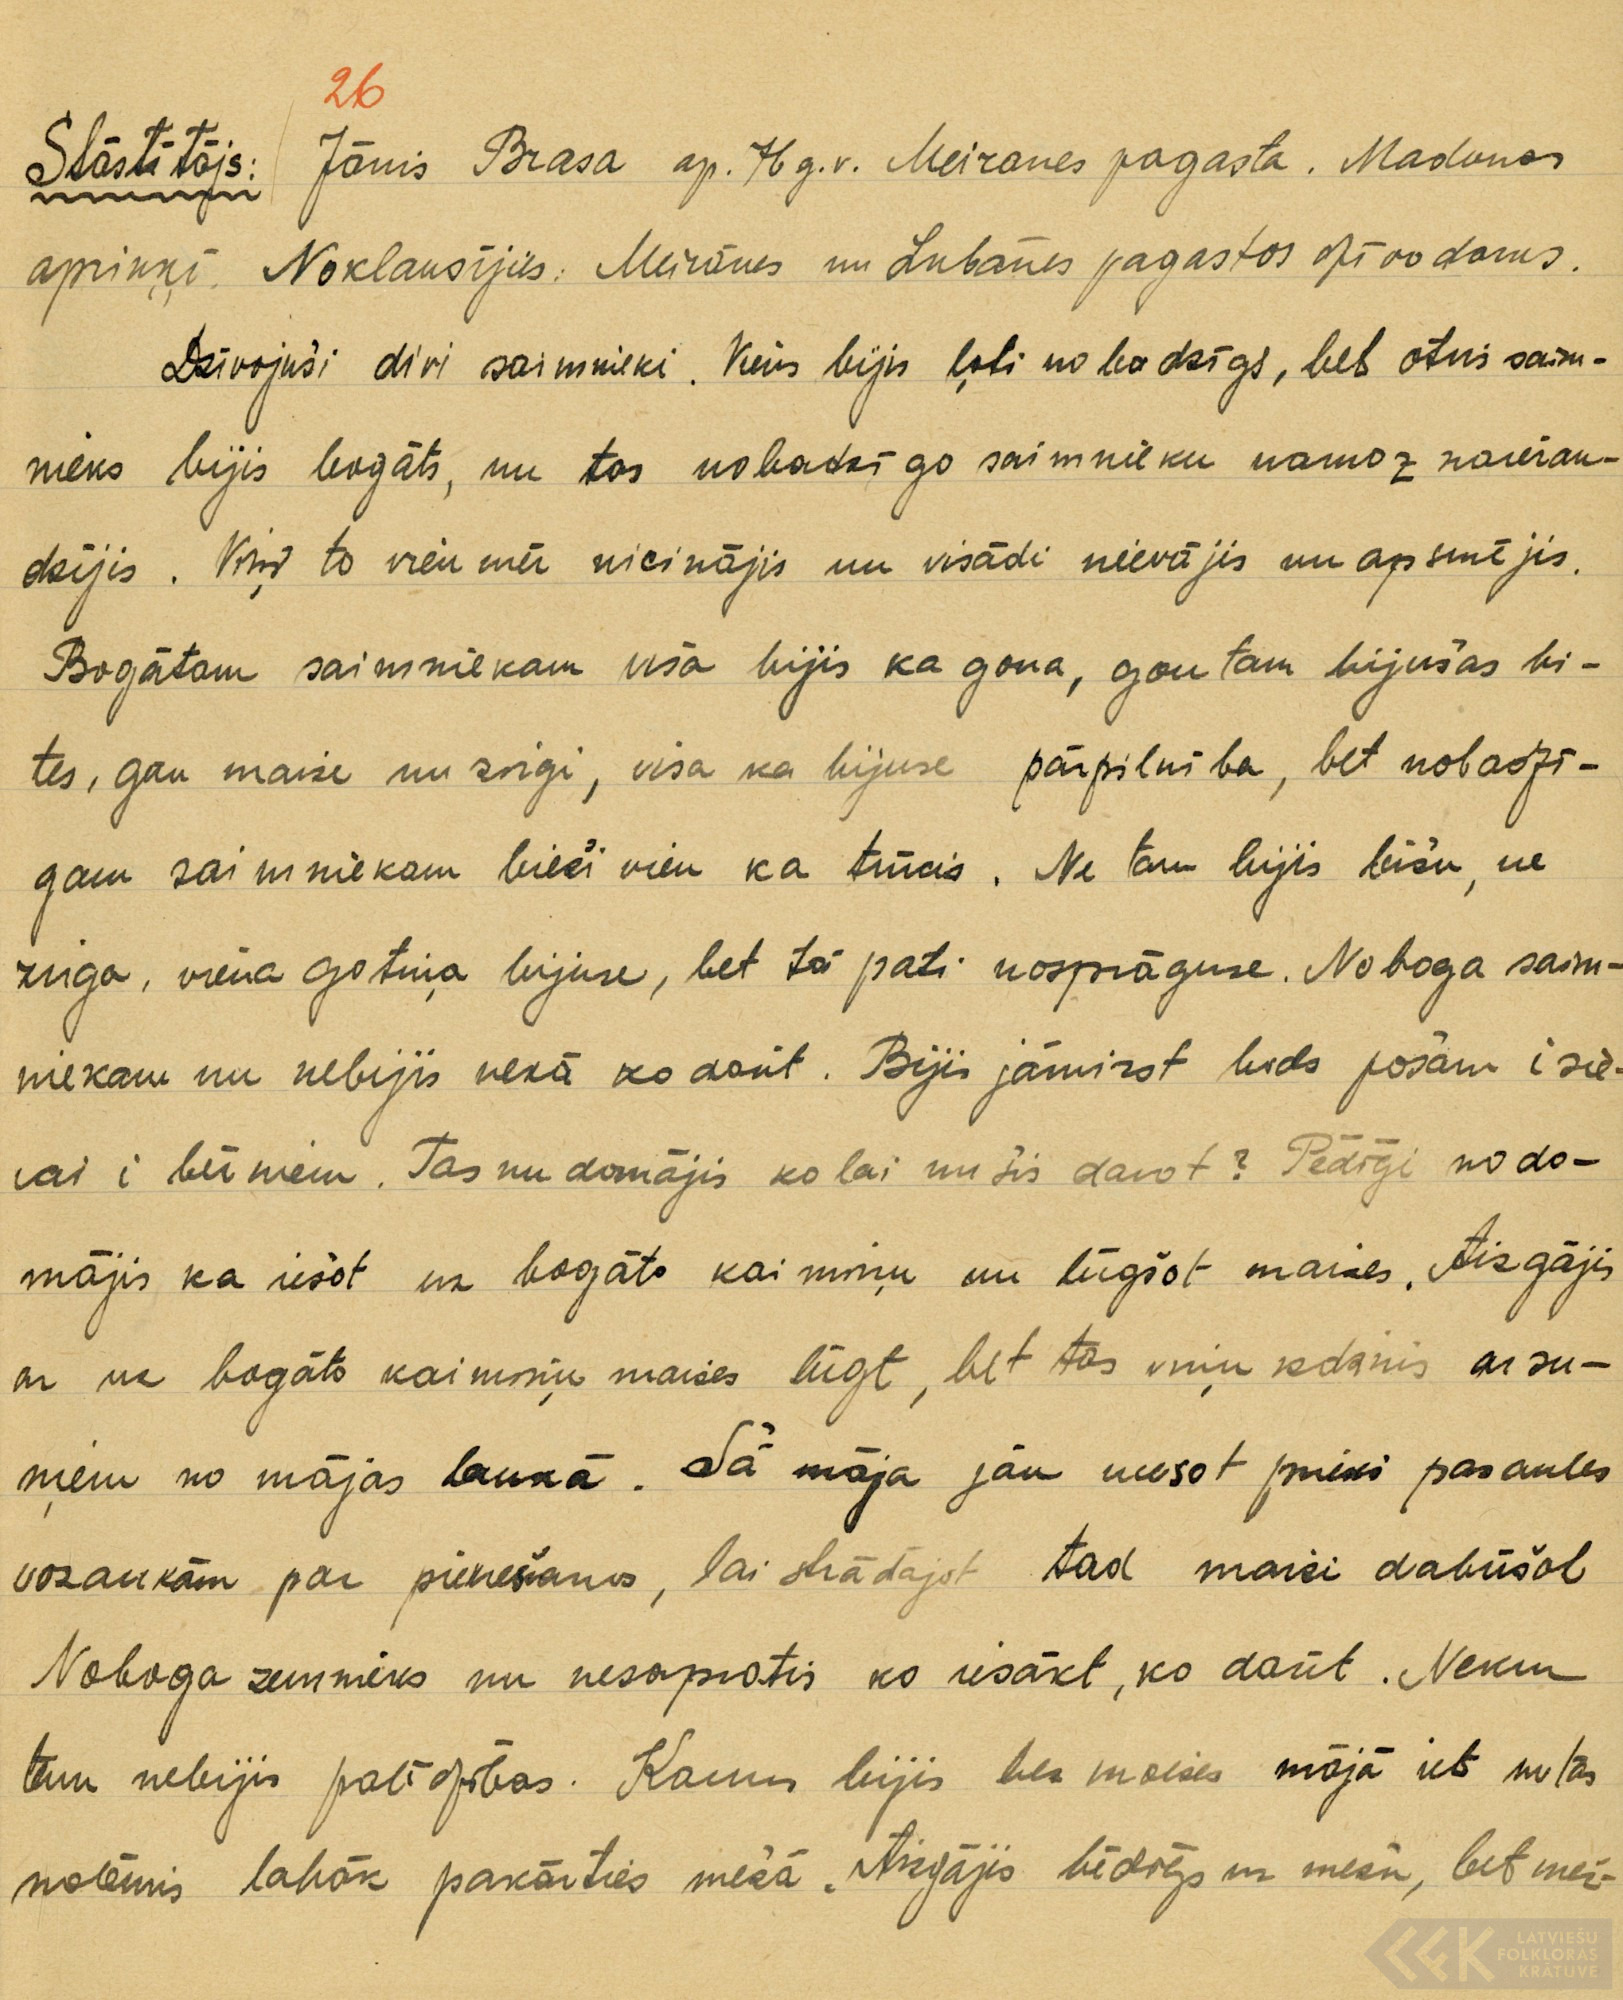 26
Stāstītājs: Jānis Brasa ap. 76 g.v. Meiranes pagasta. Madonas
apriņķī. Noklausījies: Meirānes un Lubānes pagastos dzīvodams.
Dzīvojuši divi saimnieki. Viens bijis ļoti nobadzīgs, bet otris saim-
nieks bijis bogāts, un tos nobadzīgo saimnieku namoz naieran-
dzījis. Viņš to vienmēr nicinājis un visādi nievājis un apsmējis.
Bogātam saimniekam visa bijis ka gona, gon tam bijušas bi-
tes, gan maise un zirgi, visa ka bijuse pārpilnība, bet nobadzī-
gam saimniekam bieži vien ka trūcis. Ne tam bijis bišu, ne
zirga, viena gotiņa bijuse, bet tā pati nosprāguse. Noboga saim-
niekam nu nebijis nekā ko darīt. Bijis jāmirst bads pošam i sie-
vai i bērniem. Tas nu domājis ko lai nu šis darot? Pēdīgi nodo-
mājis ka iešot uz bogāto kaimiņu un lūgšot maizes. Aizgājis
ar uz bogāto kaimiņu maizes lūgt, bet tas viņu izdzinis ar su-
ņiem no mājas laukā. Šā māja jau neesot priekš pasaules
vozaņkām par pieņešanos, lai strādājot tad maizi dabūšot
Noboga zemnieks nu nesopratis ko iesākt, ko darīt. Nekur
tam nebijis palīdzības. Kauns bijis bez maizes mājā iet nu tas
nolēmis labāk pakārties mežā. Aizgājis bēdīgs uz mežu, bet mež-
LATVIEŠU
FOLKLORAS
KRĀTUVE